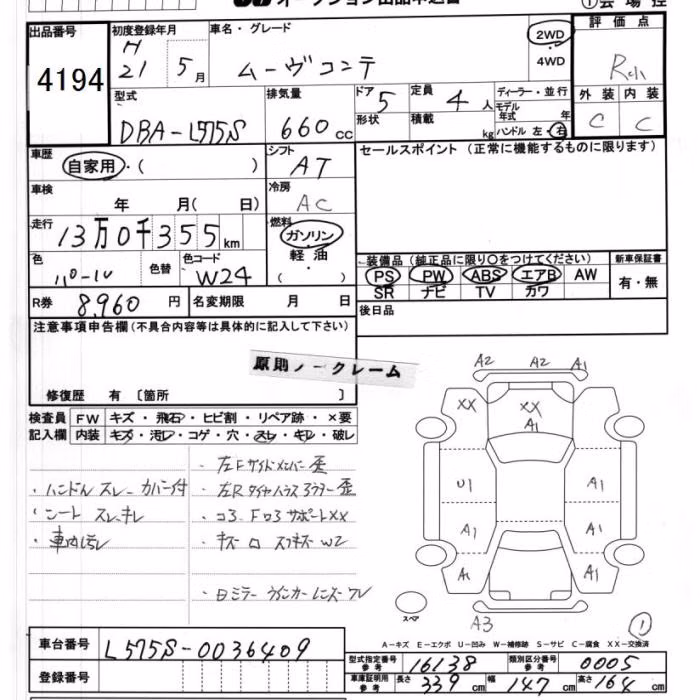 出品番号
4194
初度登録年月
H
21
5月
車名・グレード
ムーヴコンテ
2WD
4WD
評価点
R小
外装
内装
C
C
型式
DBA-L575S
排気量
660cc
ドア
5
形状
定員
4人
積載
kg
ディーラー・並行
モデル
年式
年
ハンドル 左・右
車歴
自家用・( )
シフト
AT
セールスポイント (正常に機能するものに限ります)
車検
年 月( 日)
冷房
AC
走行
13万0千355km
燃料
ガソリン
軽油
・
( )
色
パール
色替
色コード
W24
装備品 (純正品に限り○をつけてください)
新車保証書
PS PW ABS エアB AW
SR ナビ TV カワ
有・無
R券
8,960円
名変期限
月 日
後日品
注意事項申告欄 (不具合内容等は具体的に記入して下さい)
原則ノークレーム
修復歴 有 〔箇所 〕
検査員
記入欄
FW
キズ・飛石・ヒビ割・リペア跡・×要
内装
キズ・汚レ・コゲ・穴・スレ・キレ・破レ
・ハンドルスレーカバー付
・シートスレキレ
・車内汚レ
・左Fサイドメンバー歪
・左Rタイヤハウスアウター歪
・コア、FロアサポートXX
・キズ
W2
・日ミラーウインカーレンズワレ
A2
A2
A1
XX
XX
A1
U1
A1
A1
A1
A1
A1
A3
スペア
①
A-キズ E-エクボ U-凹み W-補修跡 S-サビ C-腐食 XX-交換済
車台番号
L575S-0036409
登録番号
型式指定番号
参考
16138
類別区分番号
参考
0005
車庫証明用
参考
長さ
339cm
幅
147cm
高さ
164cm